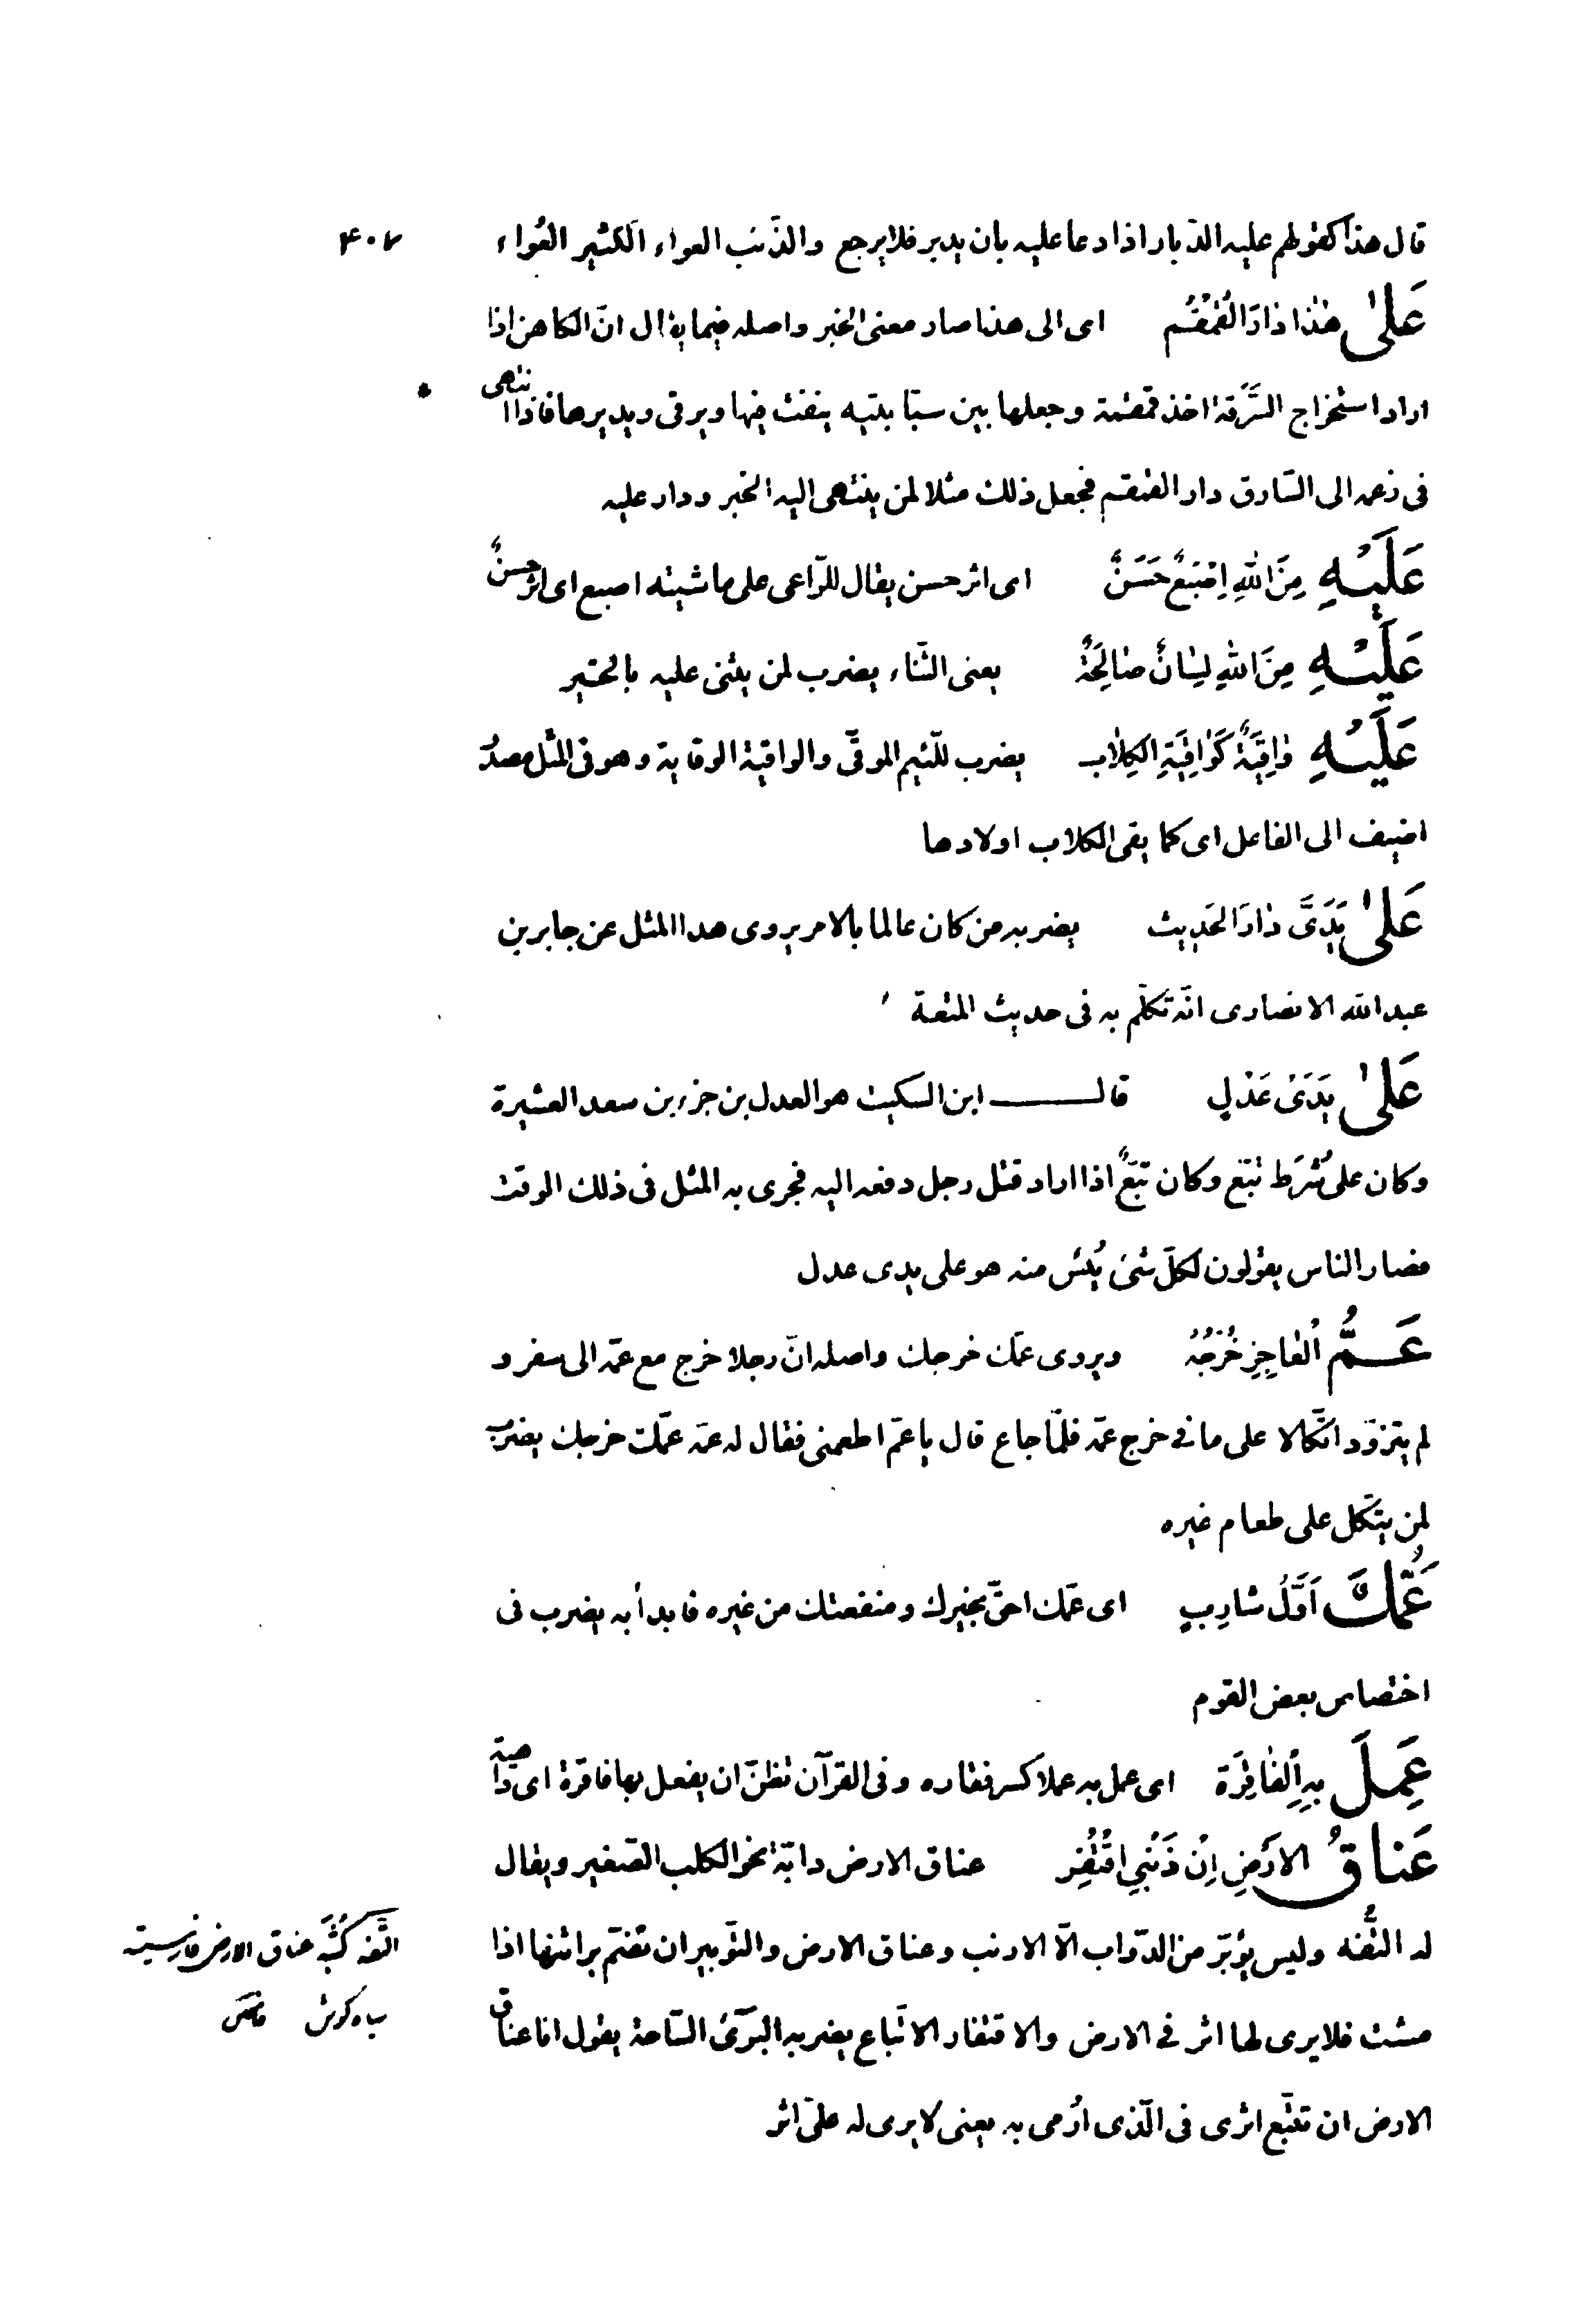 ۴۰۷
قال هذا كقولهم عليه الدّبار اذا دعا عليه بان يدبر فلا يرجع والذّئب العواء الكثير العُواء
عَلىٰ هٰذا دٰارَ القُمْقُم اى الى هذا صار معنى الخبر واصله فيما يقال انّ الكاهن اذا
اراد استخراج السَّرقة اخذ قمقمة وجعلها بين سبّابتيه ينفث فيها ويرقى ويديرها فاذا انتهى
فى زعمه الى السّارق دار القمقم فجعل ذلك مثلا لمن ينتهى اليه الخبر ودار عليه
عَلَيْهِ مِنَ اللهِ اِصْبَعٌ حَسَنٌ اى اثر حسن يقال للرّاعى على ماشيته اصبع اى اثر حسنٌ
عَلَيْهِ مِنَ اللهِ لِسٰانٌ صٰالِحَةٌ يعنى الثّناء يضرب لمن يثنى عليه بالخير
عَلَيْهِ وٰاقِيَةٌ كَوٰاقِيَةِ الكِلٰاب يضرب للّئيم الموقّى والواقية الوقاية وهو فى المثل مصدر
اضيف الى الفاعل اى كما يقى الكلاب اولادها
عَلىٰ يَدَىَّ دٰارَ الحَديث يضربه من كان عالما بالامر يروى هذا المثل عن جابر بن
عبد الله الانصارى انّه تكلّم به فى حديث المتعة
عَلىٰ يَدَىْ عَدْلٍ قال ابن السكيت هو العدل بن جزء بن سعد العشيرة
وكان على شُرَط تبّع وكان تبّعٌ اذا اراد قتل رجل دفعه اليه فجرى به المثل فى ذلك الوقت
فصار الناس يقولون لكلّ شئ يُئس منه هو على يدى عدل
عَمُّ اْلعٰاجِزِ خُرْجُهُ ويروى عمّك خرجك واصله انّ رجلا خرج مع عمّه الى سفر و
لم يتزوّد اتّكالا على ما فى خرج عمّه فلمّا جاع قال يا عمّ اطعمنى فقال له عمّه عمّك خرجك يضرب
لمن يتّكل على طعام غيره
عَمُّكَ اَوَّلُ شارِبٍ اى عمّك احقّ بخيرك ومنفعتك من غيره فابدأ به يضرب فى
اختصاص بعض القوم
عَمِلَ بِهِ اْلفٰاقِرَة اى عمل به عملا كسر فقاره وفى القرآن تظنّ ان يفعل بها فاقرة اى داهية
عَناقُ الاَرْضِ اِنْ ذَنْبِي اقْتُفِر عناق الارض دابّة نحو الكلب الصّغير ويقال
له التُّفه وليس يؤبّر من الدّواب الّا الارنب وعناق الارض والتّوبير ان تضمّ براثنها اذا
مشت فلا يرى لها اثر فى الارض والاقتفار الاتّباع يضربه البرىّٔ السّاحة يقول انا عناق
الارض ان تتبّع اثرى فى الّذى اُرمى به يعنى لا يرى له علىّ اثر
التّفه كثُبَة عناق الارض فارسيته
سياه كوش